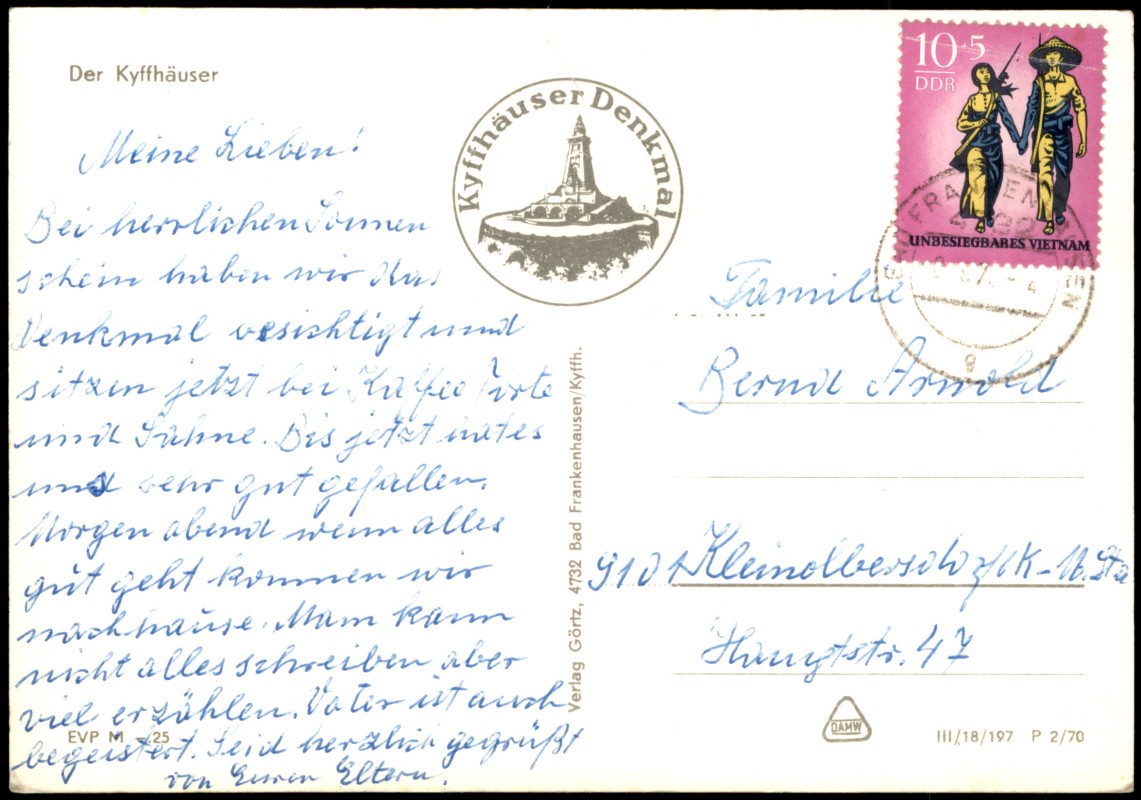 Der Kyffhäuser
Kyffhäuser Denkmal
10+5
DDR
UNBESIEGBARES VIETNAM
Meine Lieben!
Bei herrlichen Sonnen
schein haben wir das
Denkmal besichtigt und
sitzen jetzt bei Kaffee Torte
und Sahne. Bis jetzt hat es
uns sehr gut gefallen.
Morgen abend wenn alles
gut geht kommen wir
nachhause. Mam kann
nicht alles schreiben aber
viel erzählen. Vater ist auch
begeistert. Seid herzlich gegrüßt
von Euren Eltern.
EVP M –.25
Verlag Görtz, 4732 Bad Frankenhausen/Kyffh.
BAD FRANKENHAUSEN
Familie
Bernd Arnold
9101 Kleinolbersdorf/K-M.Sta
Hauptstr. 47
DAMW
III/18/197 P 2/70